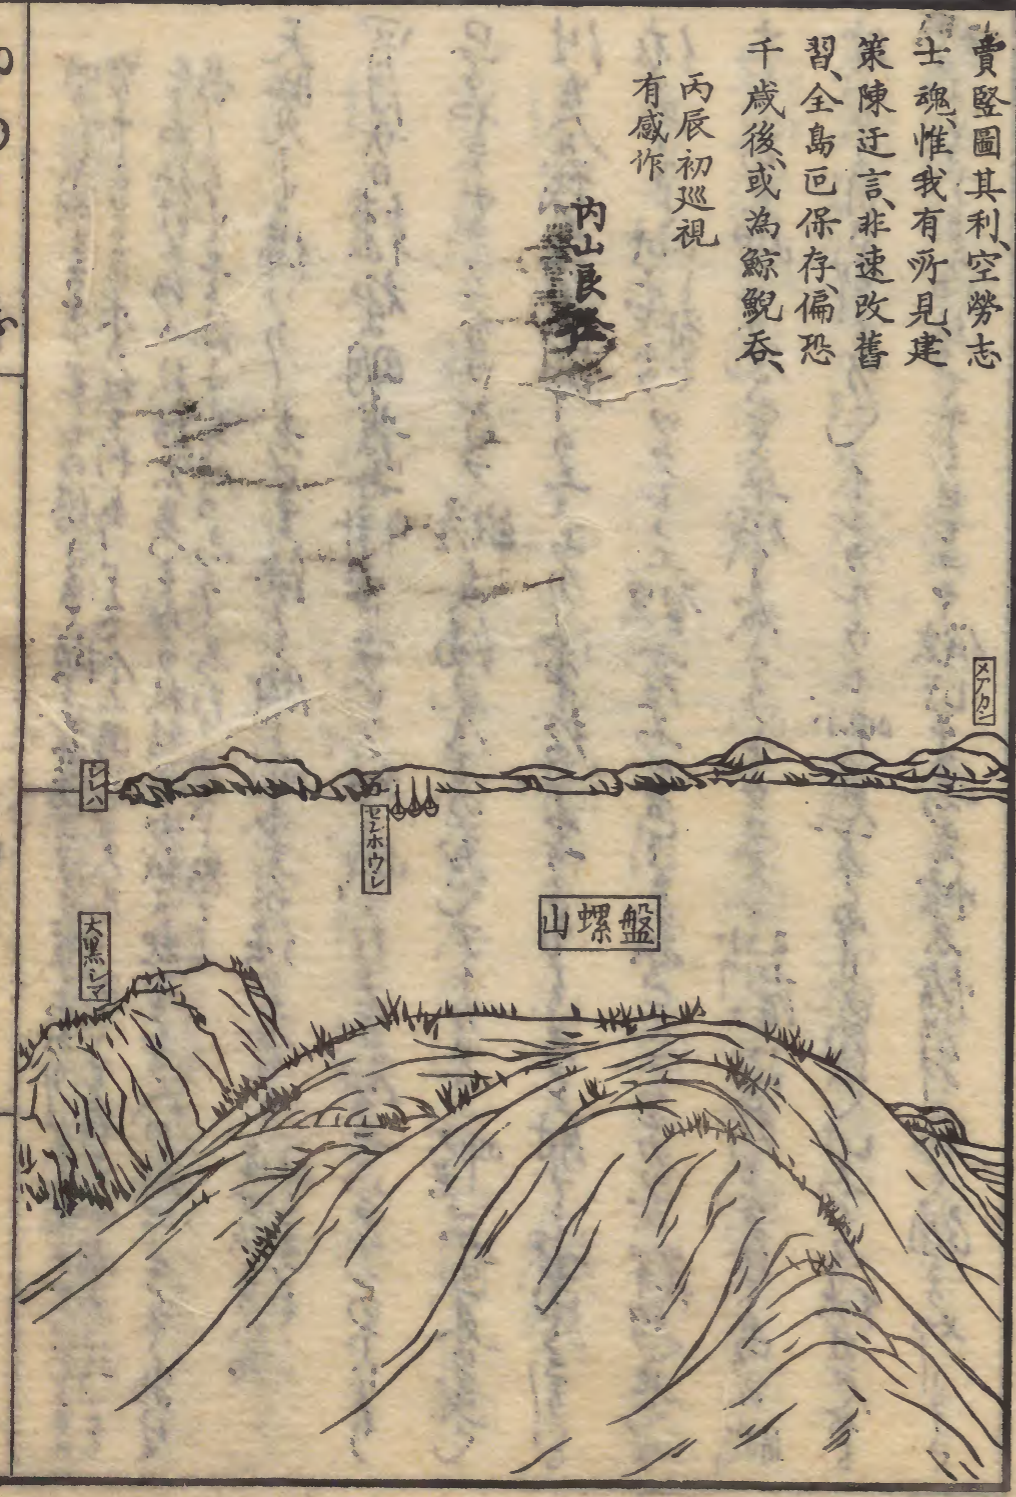 費竪圖其利、空勞志
士魂、惟我有所見、建
策陳迂言、非速改舊
習、全島叵保存、偏恐
千歳後、或為鯨鯢呑、
丙辰初巡視
有感作
内山良
メアカン
センホウシ
シレハ
盤螺山
大黒シマ